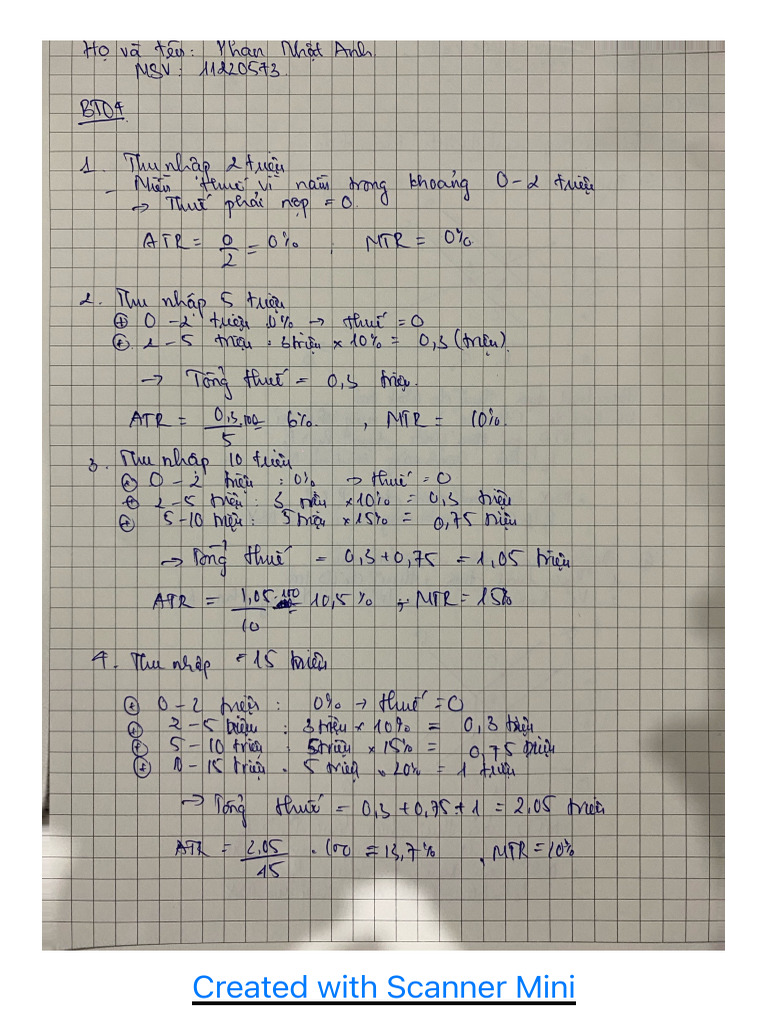 Họ và tên: Phan Nhật Anh.
MSV: 11220573.
BT04
1. Thu nhập 2 triệu
- Miễn thuế vì nằm trong khoảng 0-2 triệu
→ Thuế phải nộp = 0.
ATR = 0/2 = 0% ; MTR = 0%
2. Thu nhập 5 triệu
⊕ 0-2 triệu 0% → thuế = 0
⊕ 2-5 triệu : 3 triệu × 10% = 0,3 (triệu).
→ Tổng thuế = 0,3 triệu.
ATR = 0,3.100/5 = 6% , MTR = 10%.
3. Thu nhập 10 triệu
⊕ 0-2 triệu : 0% → thuế = 0
⊕ 2-5 triệu : 3 triệu × 10% = 0,3 triệu
⊕ 5-10 triệu : 5 triệu × 15% = 0,75 triệu
→ Tổng thuế = 0,3 + 0,75 = 1,05 triệu
ATR = 1,05.100/10 = 10,5 % ; MTR = 15%
4. Thu nhập = 15 triệu
⊕ 0-2 triệu : 0% → thuế = 0
⊕ 2-5 triệu : 3 triệu × 10% = 0,3 triệu
⊕ 5-10 triệu : 5 triệu × 15% = 0,75 triệu
⊕ 10-15 triệu . 5 triệu . 20% = 1 triệu
→ Tổng thuế = 0,3 + 0,75 + 1 = 2,05 triệu
ATR = 2,05/15 . 100 = 13,7% , MTR = 10%
Created with Scanner Mini